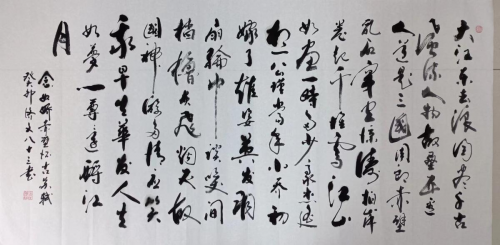 大江东去浪淘尽千古
风流人物故垒西边
人道是三国周郎赤壁
乱石穿空惊涛拍岸
卷起千堆雪江山
如画一时多少豪杰遥
想公瑾当年小乔初
嫁了雄姿英发羽
扇纶巾谈笑间
樯橹灰飞烟灭故
国神游多情应笑
我早生华发人生
如梦一尊还酹江
月
念奴娇赤壁怀古苏轼
癸卯济文八十三书